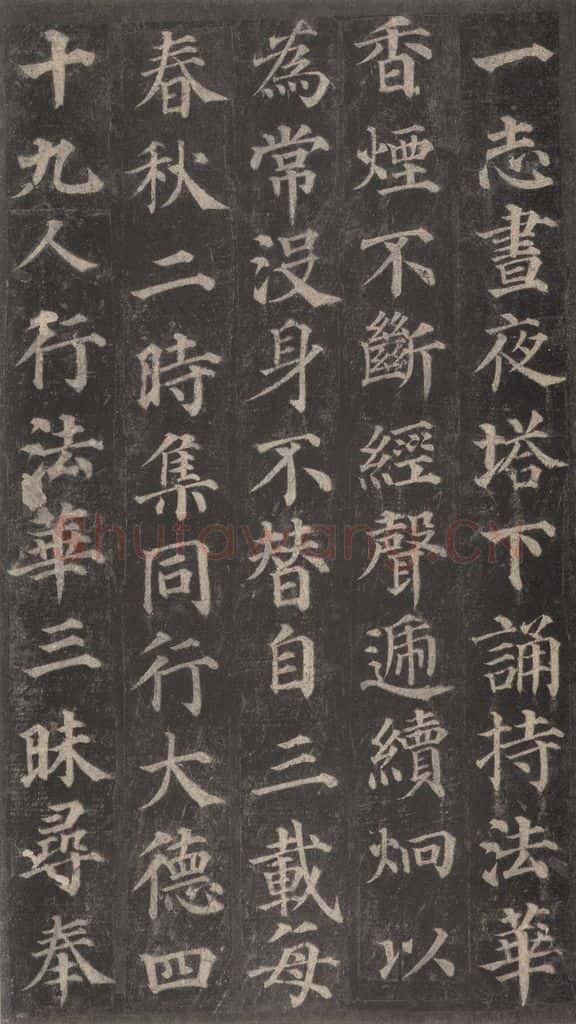 一志晝夜塔下誦持法華
香煙不斷經聲遞續炯以
為常沒身不替自三載每
春秋二時集同行大德四
十九人行法華三昧尋奉
shufawang.cn